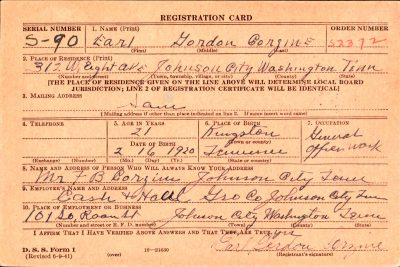 REGISTRATION CARD
SERIAL NUMBER 1. NAME (Print) ORDER NUMBER
S-90 Earl Gordon Corzine
(First) (Middle) (Last)
2. PLACE OF RESIDENCE (Print)
317 W. Eight Ave Johnson City Washington Tenn
(Number and street) (Town, township, village, or city) (County) (State)
[THE PLACE OF RESIDENCE GIVEN ON THE LINE ABOVE WILL DETERMINE LOCAL BOARD
JURISDICTION; LINE 2 OF REGISTRATION CERTIFICATE WILL BE IDENTICAL]
3. MAILING ADDRESS
Same
[Mailing address if other than place indicated on line 2. If same insert word same]
4. TELEPHONE 5. AGE IN YEARS 6. PLACE OF BIRTH 7. OCCUPATION
21 Kingston General
DATE OF BIRTH (Town or county) office work
2 16 1920 Tennessee
(Exchange) (Number) (Mo.) (Day) (Yr.) (State or country)
8. NAME AND ADDRESS OF PERSON WHO WILL ALWAYS KNOW YOUR ADDRESS
Mr. Corzine Johnson City Tenn
9. EMPLOYER'S NAME AND ADDRESS
Cash + Hall Gro Co Johnson City
10. PLACE OF EMPLOYMENT OR BUSINESS
101 So Roan St Johnson City Washington Tenn
(Street or R. F. D. number) (Town) (County) (State)
I AFFIRM THAT I HAVE VERIFIED ABOVE ANSWERS AND THAT THEY ARE TRUE.
D. S. S. Form 1 Earl Gordon Corzine
(Revised 6-9-41) (over) (Registrant's signature)